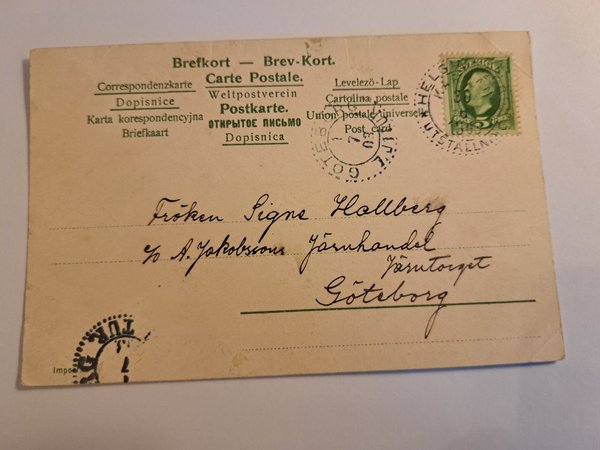 Brefkort — Brev-Kort.
Carte Postale.
Correspondenzkarte
Dopisnice
Karta korespondencyjna
Briefkaart
Weltpostverein
Postkarte.
ОТКРЫТОЕ ПИСЬМО
Dopisnica
Levelező-Lap
Cartolina postale
Union postale universelle
Post card
SVERIGE
5
HELS
UTSTÄLLN
GÖTEB
1
7
03
Fröken Signe Hallberg
c/o A. Jakobssons Järnhandel
Järntorget
Göteborg
TUR
7
Impo